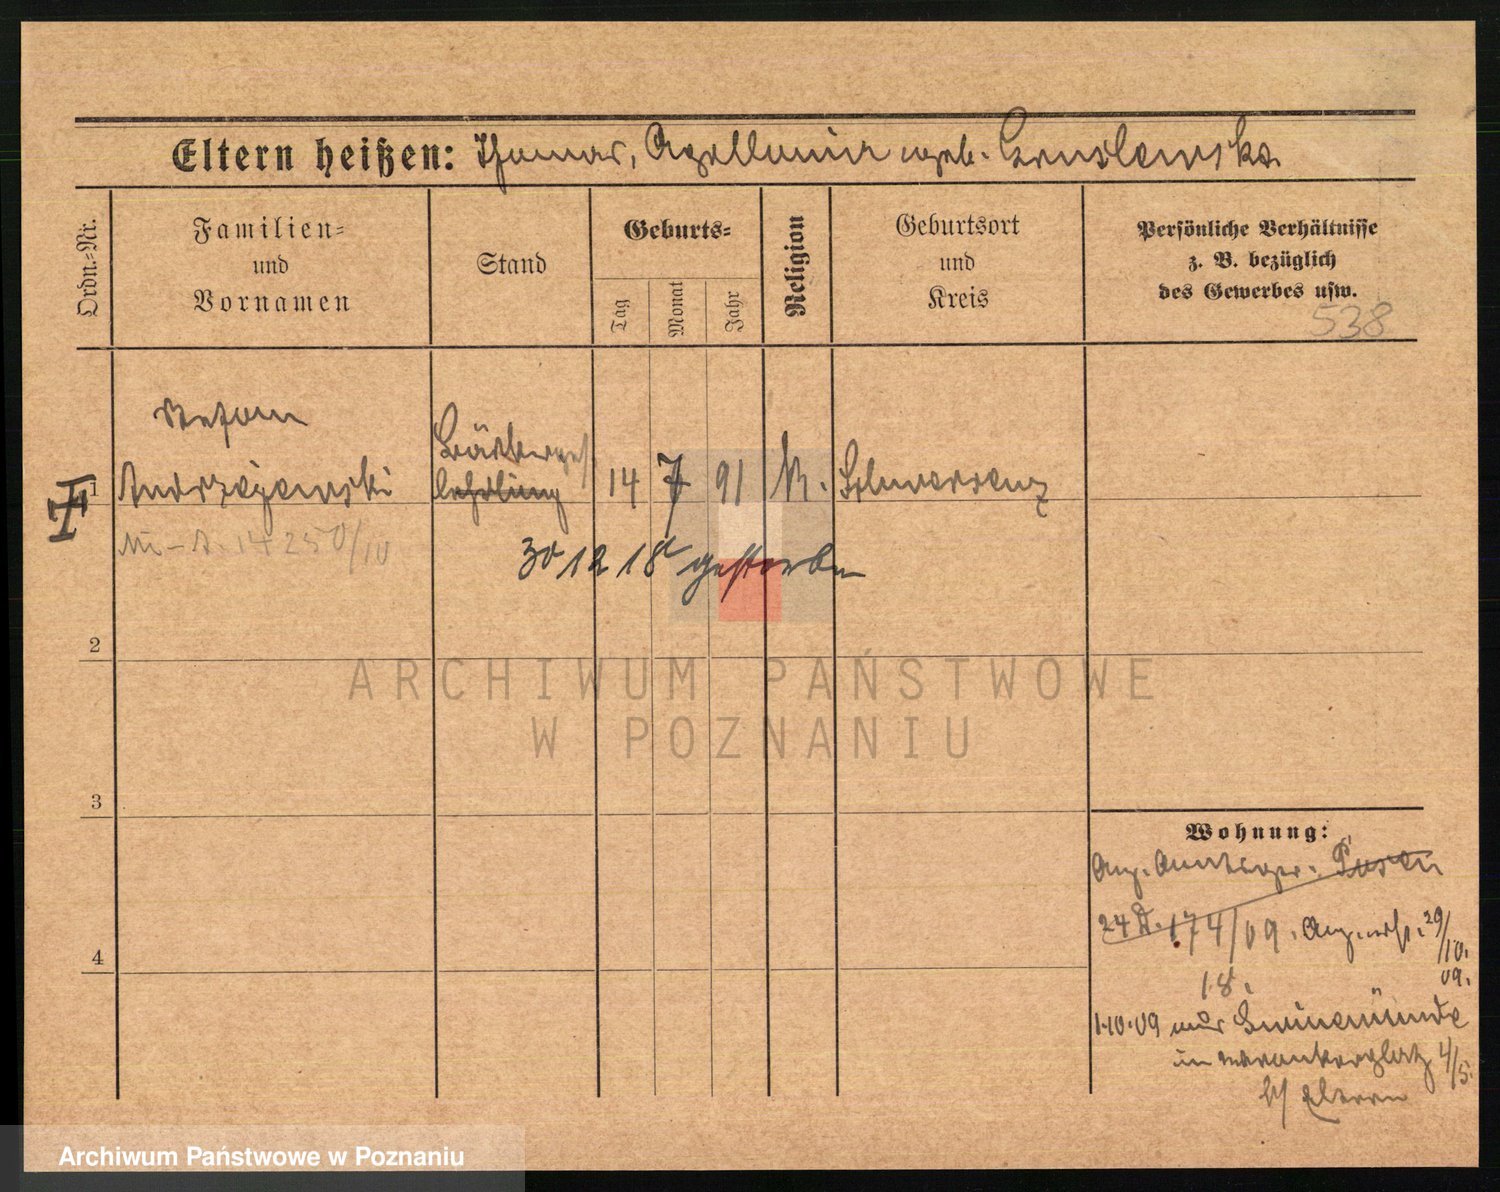 Eltern heißen: Thomas, Apollonia geb. Cerulewska
Ordn.-Nr.
Familien-
und
Vornamen
Stand
Geburts-
Tag
Monat
Jahr
Religion
Geburtsort
und
Kreis
Persönliche Verhältnisse
z. B. bezüglich
des Gewerbes usw.
538
Stefan
1
Andrzejewski
lehrling
14 7 91
K.
Schwersenz
14250/10
30 12 18 gestorben
2
3
4
Wohnung:
Posen
24 174/09. 29/10.
18. 09.
1.10.09 Swinemünde
4/5.
b/ Eltern
ARCHIWUM PAŃSTWOWE
W POZNANIU
Archiwum Państwowe w Poznaniu